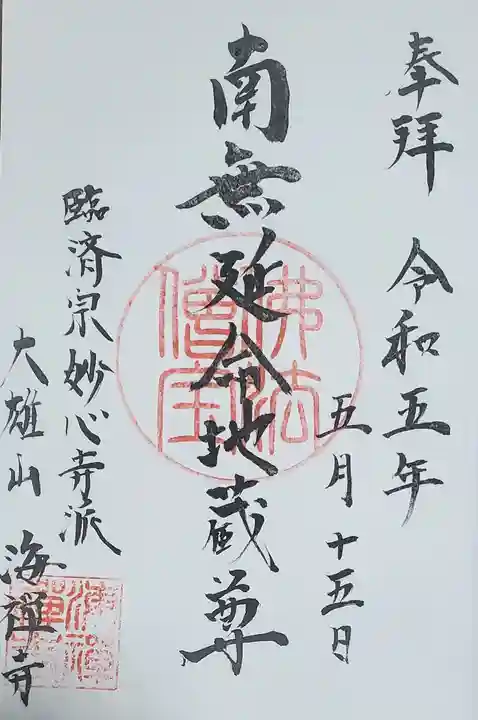 奉拝 令和五年
五月十五日
南無延命地蔵尊
佛法
僧宝
臨済宗妙心寺派
大雄山 海禅寺